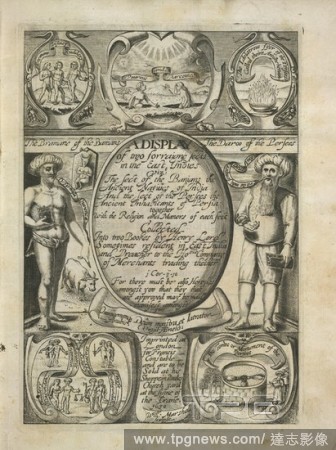 The Bramane of the Banians
The Daroo of the Persees
A DISPLAY
of two forraigne sects
in the East Indies
Viz:
The sect of the Banians the
Ancient Natives of India
And the sect of the Persees the
Ancient Inhabitants of Persia
with the Religion and Maners of each sect
Collected
Into two Bookes by Henry Lord
Sometimes resident in East India
and Preacher to the Company
of Merchants trading thether
1 Cor:
For there must be also
amongst you that they
approved may be
Imprinted at
London
for Francis
Constable
and are to be
Sold at his
Shoppe in Paules
Church yard
at the signe of
the Crane
1630
www.tpgnews.com / 達志影像